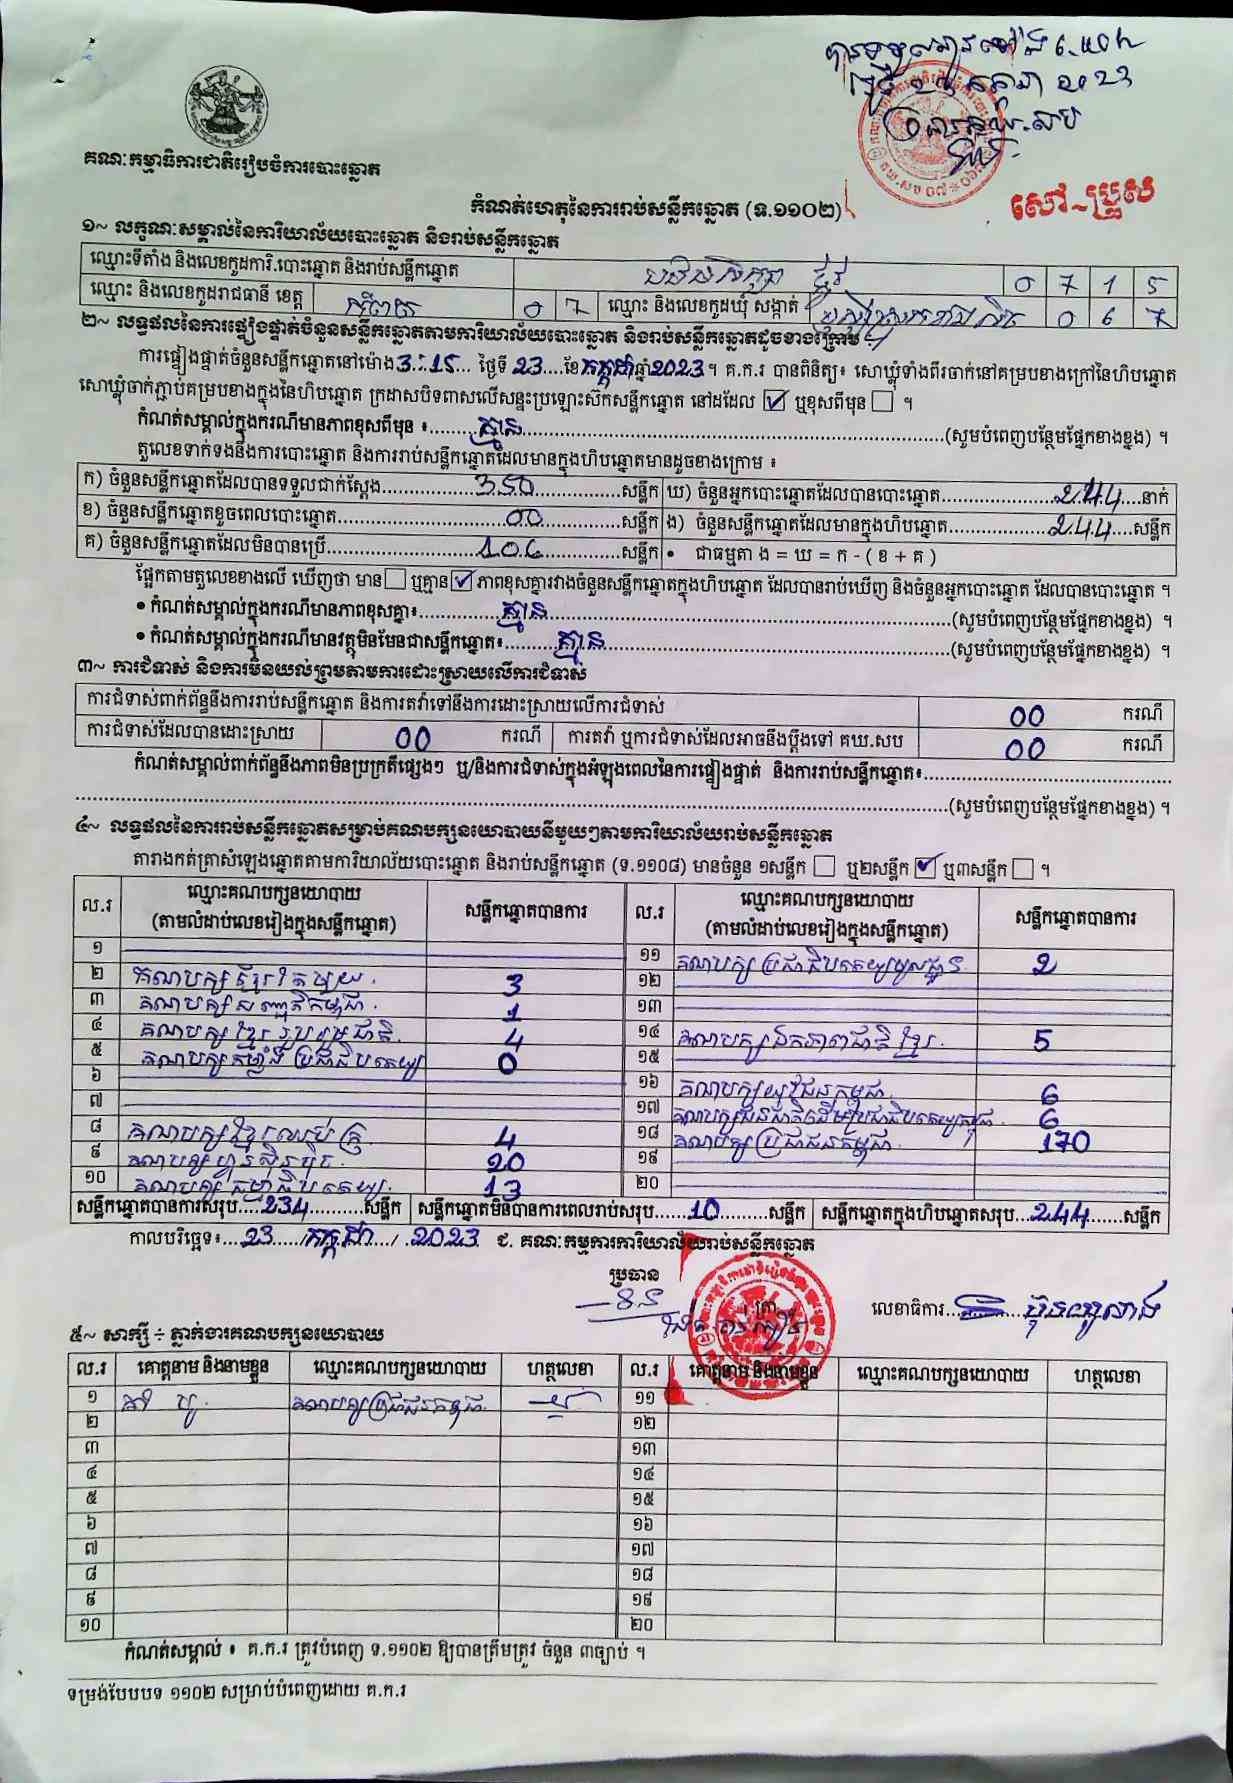 គណៈកម្មាធិការជាតិរៀបចំការបោះឆ្នោត
សៅ~ប្រួស
កំណត់ហេតុនៃការរាប់សន្លឹកឆ្នោត (ទ.១១០២)
១~ លក្ខណៈសម្គាល់នៃការិយាល័យបោះឆ្នោត និងរាប់សន្លឹកឆ្នោត
ឈ្មោះទីតាំង និងលេខកូដការិ.បោះឆ្នោត និងរាប់សន្លឹកឆ្នោត 0 7 1 5
ឈ្មោះ និងលេខកូដរាជធានី ខេត្ត កំពត 0 7 ឈ្មោះ និងលេខកូដឃុំ សង្កាត់ 0 6 7
២~ លទ្ធផលនៃការផ្ទៀងផ្ទាត់ចំនួនសន្លឹកឆ្នោតតាមការិយាល័យបោះឆ្នោត និងរាប់សន្លឹកឆ្នោតដូចខាងក្រោម
ការផ្ទៀងផ្ទាត់ចំនួនសន្លឹកឆ្នោតនៅម៉ោង 3:15 ថ្ងៃទី 23 ខែ កក្កដា ឆ្នាំ 2023 ។ គ.ក.រ បានពិនិត្យ៖ សោឃ្លុំទាំងពីរចាក់នៅគម្របខាងក្រៅនៃហិបឆ្នោត
សោឃ្លុំចាក់ភ្ជាប់គម្របខាងក្នុងនៃហិបឆ្នោត ក្រដាសបិទពាសលើសន្ទះប្រឡោះស៊កសន្លឹកឆ្នោត នៅដដែល ☑ ឬខុសពីមុន ☐ ។
កំណត់សម្គាល់ក្នុងករណីមានភាពខុសពីមុន ៖ គ្មាន (សូមបំពេញបន្ថែមផ្នែកខាងខ្នង) ។
តួលេខទាក់ទងនឹងការបោះឆ្នោត និងការរាប់សន្លឹកឆ្នោតដែលមានក្នុងហិបឆ្នោតមានដូចខាងក្រោម ៖
ក) ចំនួនសន្លឹកឆ្នោតដែលបានទទួលជាក់ស្តែង 350 សន្លឹក ឃ) ចំនួនអ្នកបោះឆ្នោតដែលបានបោះឆ្នោត 244 នាក់
ខ) ចំនួនសន្លឹកឆ្នោតខូចពេលបោះឆ្នោត 00 សន្លឹក ង) ចំនួនសន្លឹកឆ្នោតដែលមានក្នុងហិបឆ្នោត 244 សន្លឹក
គ) ចំនួនសន្លឹកឆ្នោតដែលមិនបានប្រើ 106 សន្លឹក • ជាធម្មតា ង = ឃ = ក - ( ខ + គ )
ផ្អែកតាមតួលេខខាងលើ ឃើញថា មាន ☐ ឬគ្មាន ☑ ភាពខុសគ្នារវាងចំនួនសន្លឹកឆ្នោតក្នុងហិបឆ្នោត ដែលបានរាប់ឃើញ និងចំនួនអ្នកបោះឆ្នោត ដែលបានបោះឆ្នោត ។
• កំណត់សម្គាល់ក្នុងករណីមានភាពខុសគ្នា៖ គ្មាន (សូមបំពេញបន្ថែមផ្នែកខាងខ្នង) ។
• កំណត់សម្គាល់ក្នុងករណីមានវត្ថុមិនមែនជាសន្លឹកឆ្នោត៖ គ្មាន (សូមបំពេញបន្ថែមផ្នែកខាងខ្នង) ។
៣~ ការជំទាស់ និងការមិនយល់ព្រមតាមការដោះស្រាយលើការជំទាស់
ការជំទាស់ពាក់ព័ន្ធនឹងការរាប់សន្លឹកឆ្នោត និងការតវ៉ាទៅនឹងការដោះស្រាយលើការជំទាស់ 00 ករណី
ការជំទាស់ដែលបានដោះស្រាយ 00 ករណី ការតវ៉ា ឬការជំទាស់ដែលអាចនឹងប្តឹងទៅ គឃ.សប 00 ករណី
កំណត់សម្គាល់ពាក់ព័ន្ធនឹងភាពមិនប្រក្រតីផ្សេងៗ ឬ/និងការជំទាស់ក្នុងអំឡុងពេលនៃការផ្ទៀងផ្ទាត់ និងការរាប់សន្លឹកឆ្នោត៖
(សូមបំពេញបន្ថែមផ្នែកខាងខ្នង) ។
៤~ លទ្ធផលនៃការរាប់សន្លឹកឆ្នោតសម្រាប់គណបក្សនយោបាយនីមួយៗតាមការិយាល័យរាប់សន្លឹកឆ្នោត
តារាងកត់ត្រាសំឡេងឆ្នោតតាមការិយាល័យបោះឆ្នោត និងរាប់សន្លឹកឆ្នោត (ទ.១១០៨) មានចំនួន ១សន្លឹក ☐ ឬ២សន្លឹក ☑ ឬ៣សន្លឹក ☐ ។
ល.រ ឈ្មោះគណបក្សនយោបាយ (តាមលំដាប់លេខរៀងក្នុងសន្លឹកឆ្នោត) សន្លឹកឆ្នោតបានការ ល.រ ឈ្មោះគណបក្សនយោបាយ (តាមលំដាប់លេខរៀងក្នុងសន្លឹកឆ្នោត) សន្លឹកឆ្នោតបានការ
១ ១១ 2
២ គណបក្សខ្មែរតែមួយ 3 ១២
៣ គណបក្សសញ្ជាតិកម្ពុជា 1 ១៣
៤ គណបក្សខ្មែររួបរួមជាតិ 4 ១៤ គណបក្សឯកភាពជាតិខ្មែរ 5
៥ គណបក្សកម្លាំងប្រជាធិបតេយ្យ 0 ១៥
៦ ១៦ គណបក្សយុវជនកម្ពុជា 6
៧ ១៧ គណបក្សជនជាតិដើមប្រជាធិបតេយ្យកម្ពុជា 6
៨ 4 ១៨ គណបក្សប្រជាជនកម្ពុជា 170
៩ គណបក្សហ្វ៊ុនស៊ិនប៉ិច 20 ១៩
១០ គណបក្សធម្មាធិបតេយ្យ 13 ២០
សន្លឹកឆ្នោតបានការសរុប 234 សន្លឹក សន្លឹកឆ្នោតមិនបានការពេលរាប់សរុប 10 សន្លឹក សន្លឹកឆ្នោតក្នុងហិបឆ្នោតសរុប 244 សន្លឹក
កាលបរិច្ឆេទ៖ 23 / កក្កដា / 2023 ជ. គណៈកម្មការការិយាល័យរាប់សន្លឹកឆ្នោត
ប្រធាន
លេខាធិការ
៥~ សាក្សី ÷ ភ្នាក់ងារគណបក្សនយោបាយ
ល.រ គោត្តនាម និងនាមខ្លួន ឈ្មោះគណបក្សនយោបាយ ហត្ថលេខា ល.រ គោត្តនាម និងនាមខ្លួន ឈ្មោះគណបក្សនយោបាយ ហត្ថលេខា
១ គណបក្សប្រជាជនកម្ពុជា ១១
២ ១២
៣ ១៣
៤ ១៤
៥ ១៥
៦ ១៦
៧ ១៧
៨ ១៨
៩ ១៩
១០ ២០
កំណត់សម្គាល់ ៖ គ.ក.រ ត្រូវបំពេញ ទ.១១០២ ឱ្យបានត្រឹមត្រូវ ចំនួន ៣ច្បាប់ ។
ទម្រង់បែបបទ ១១០២ សម្រាប់បំពេញដោយ គ.ក.រ